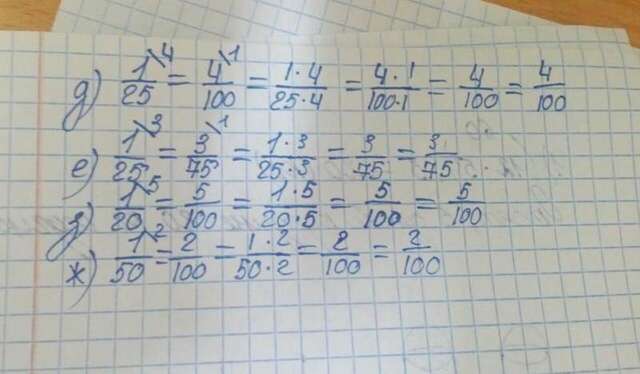 д) 1\4/25 = 4\1/100 = 1·4/25·4 = 4·1/100·1 = 4/100 = 4/100
е) 1\3/25 = 3\1/75 = 1·3/25·3 = 3/75 = 3/75
з) 1\5/20 = 5/100 = 1·5/20·5 = 5/100 = 5/100
ж) 1\2/50 = 2/100 = 1·2/50·2 = 2/100 = 2/100